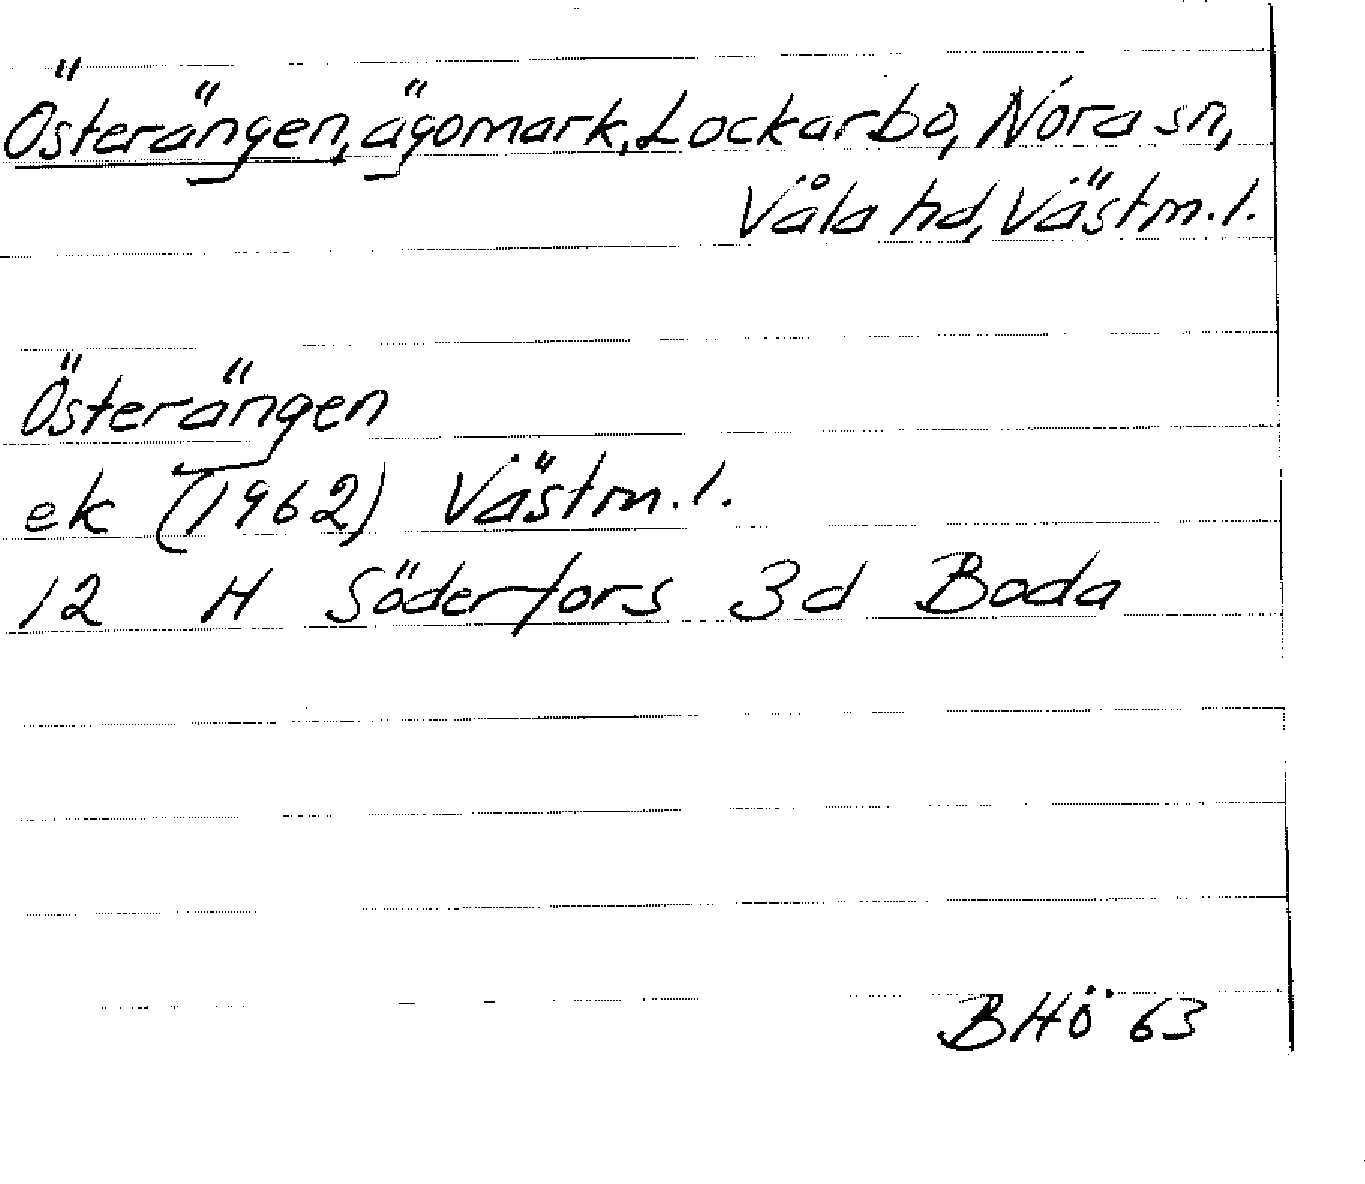 Österängen, ägomark, Lockarbo, Nora sn,
Våla hd, Västm. l.
Österängen
ek (1962) Västm. l.
12 H Söderfors 3d Boda
BHö 63